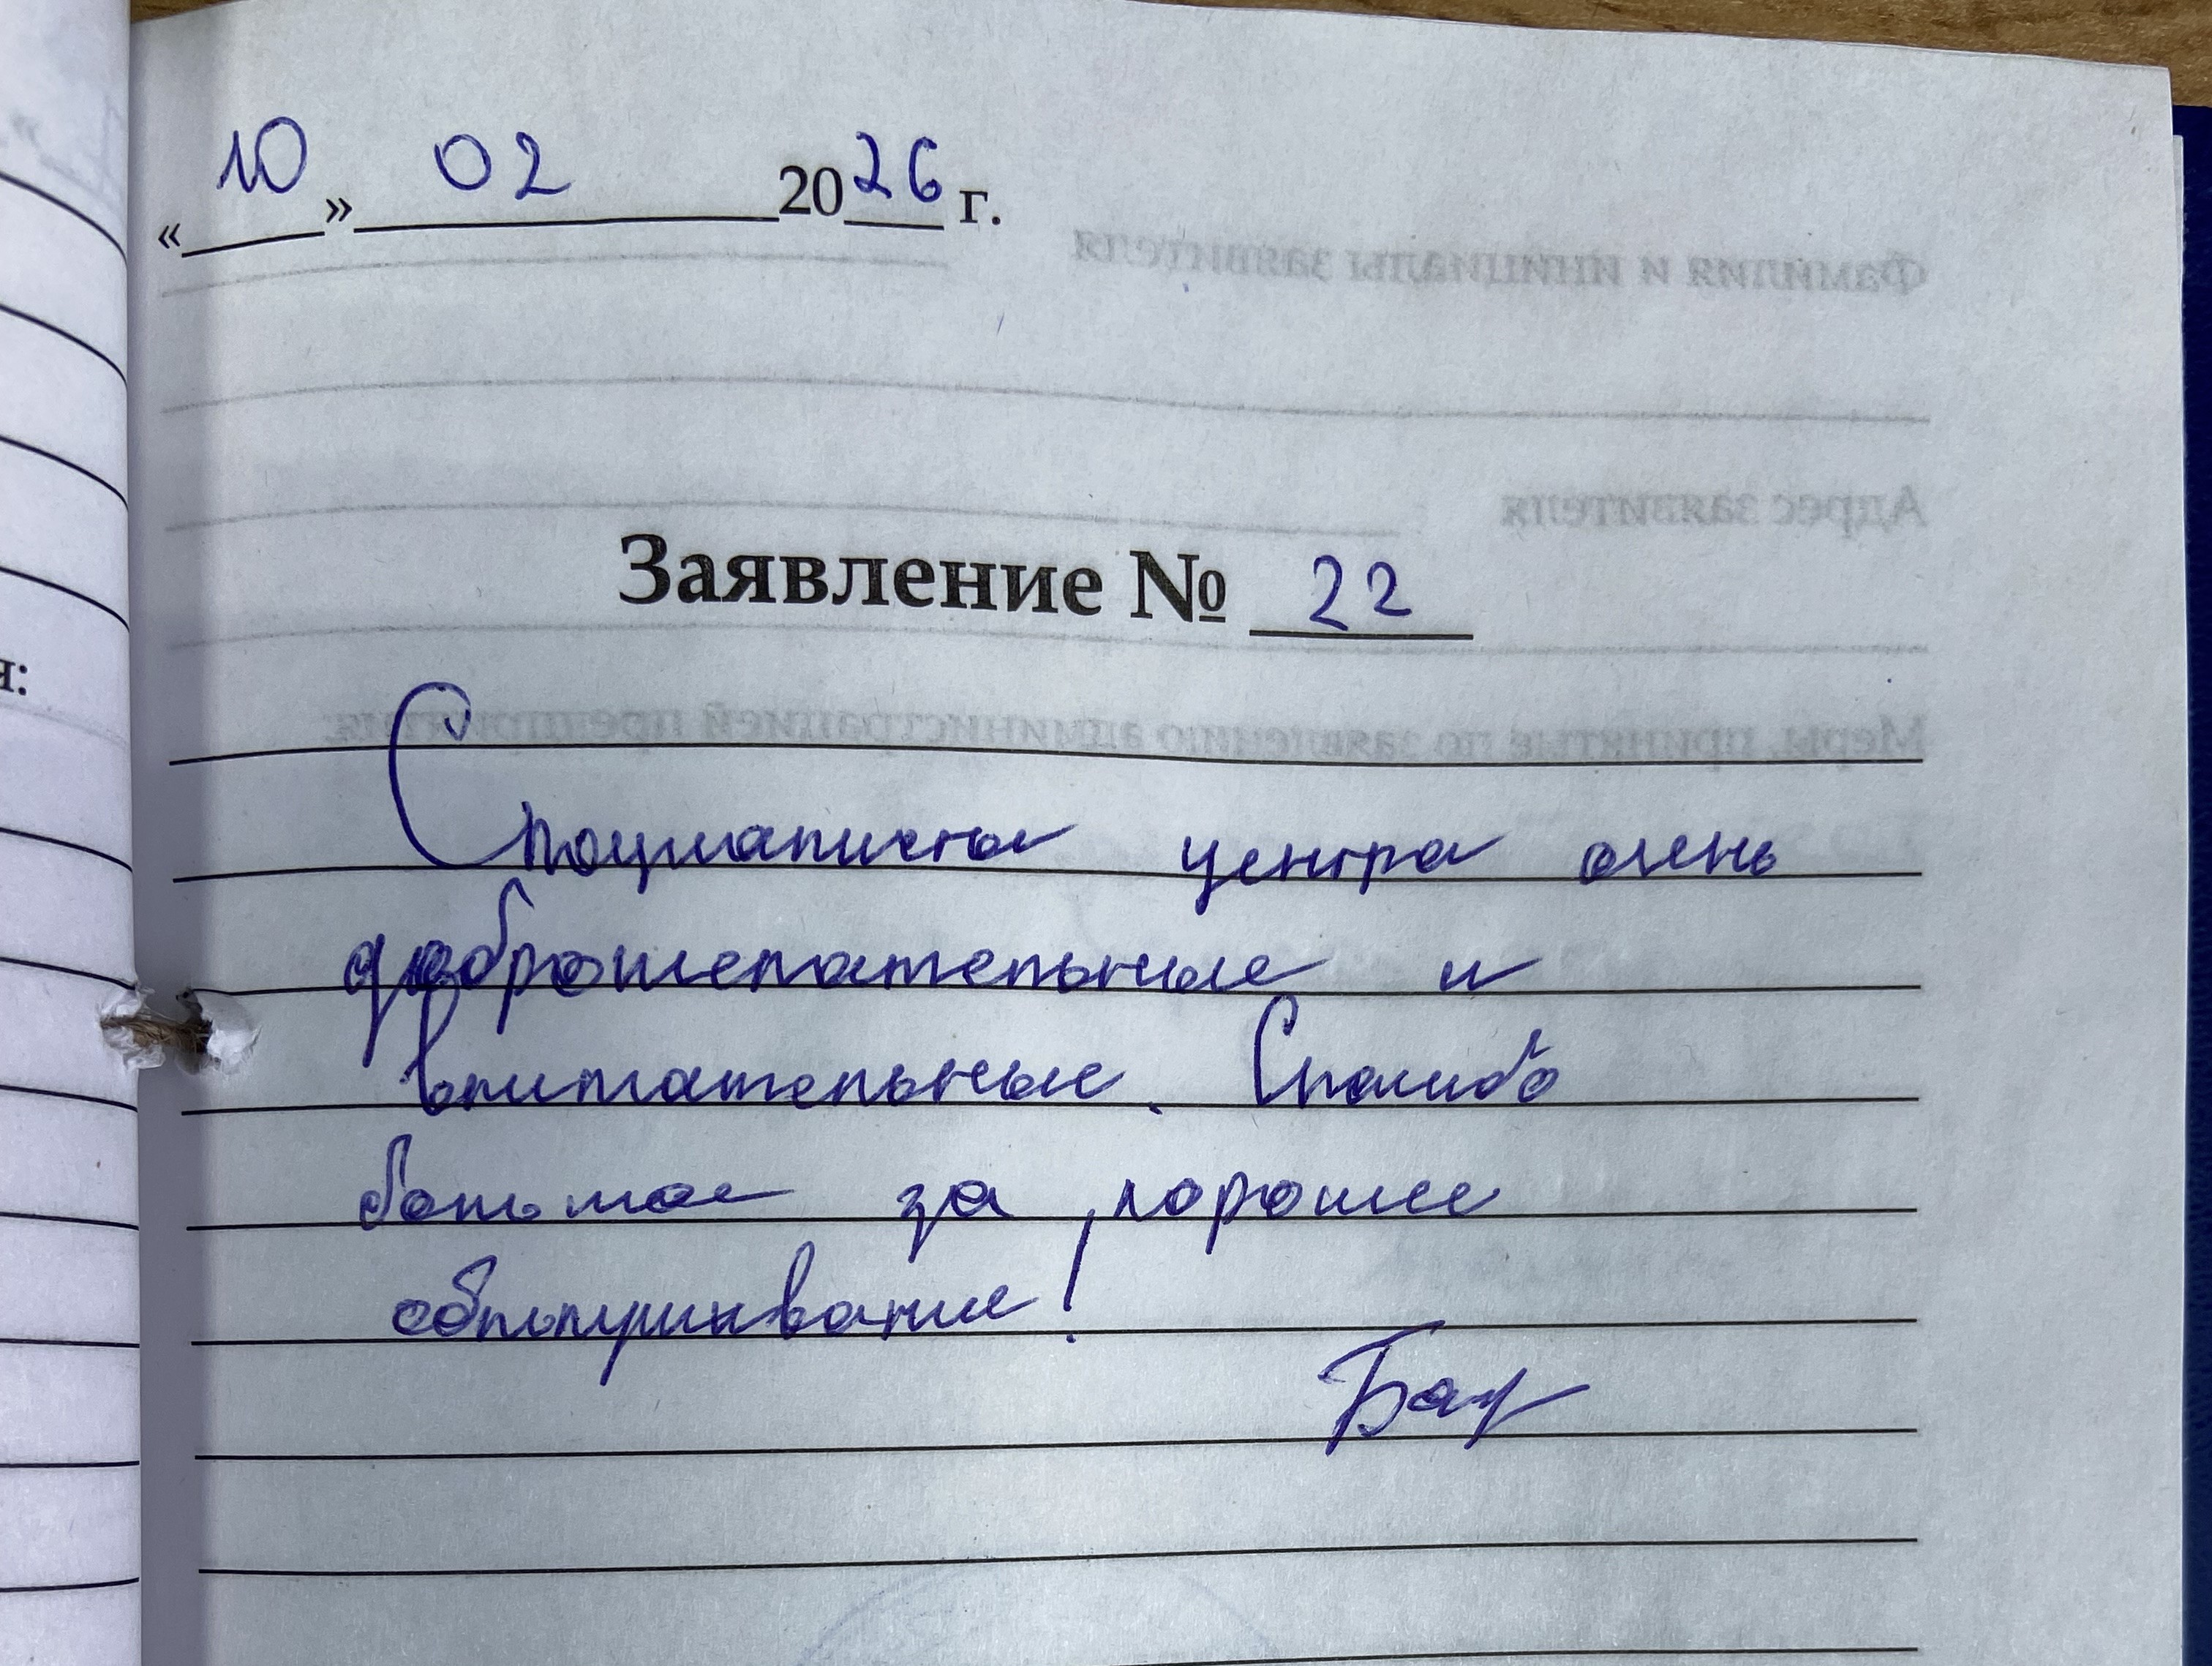 «10» 02 2026 г.
Фамилия и инициалы заявителя
Адрес заявителя
Заявление № 22
я:
Меры, принятые по заявлению администрацией предприятия:
Специалисты центра очень
доброжелательные и
внимательные. Спасибо
большое за хорошее
обслуживание!